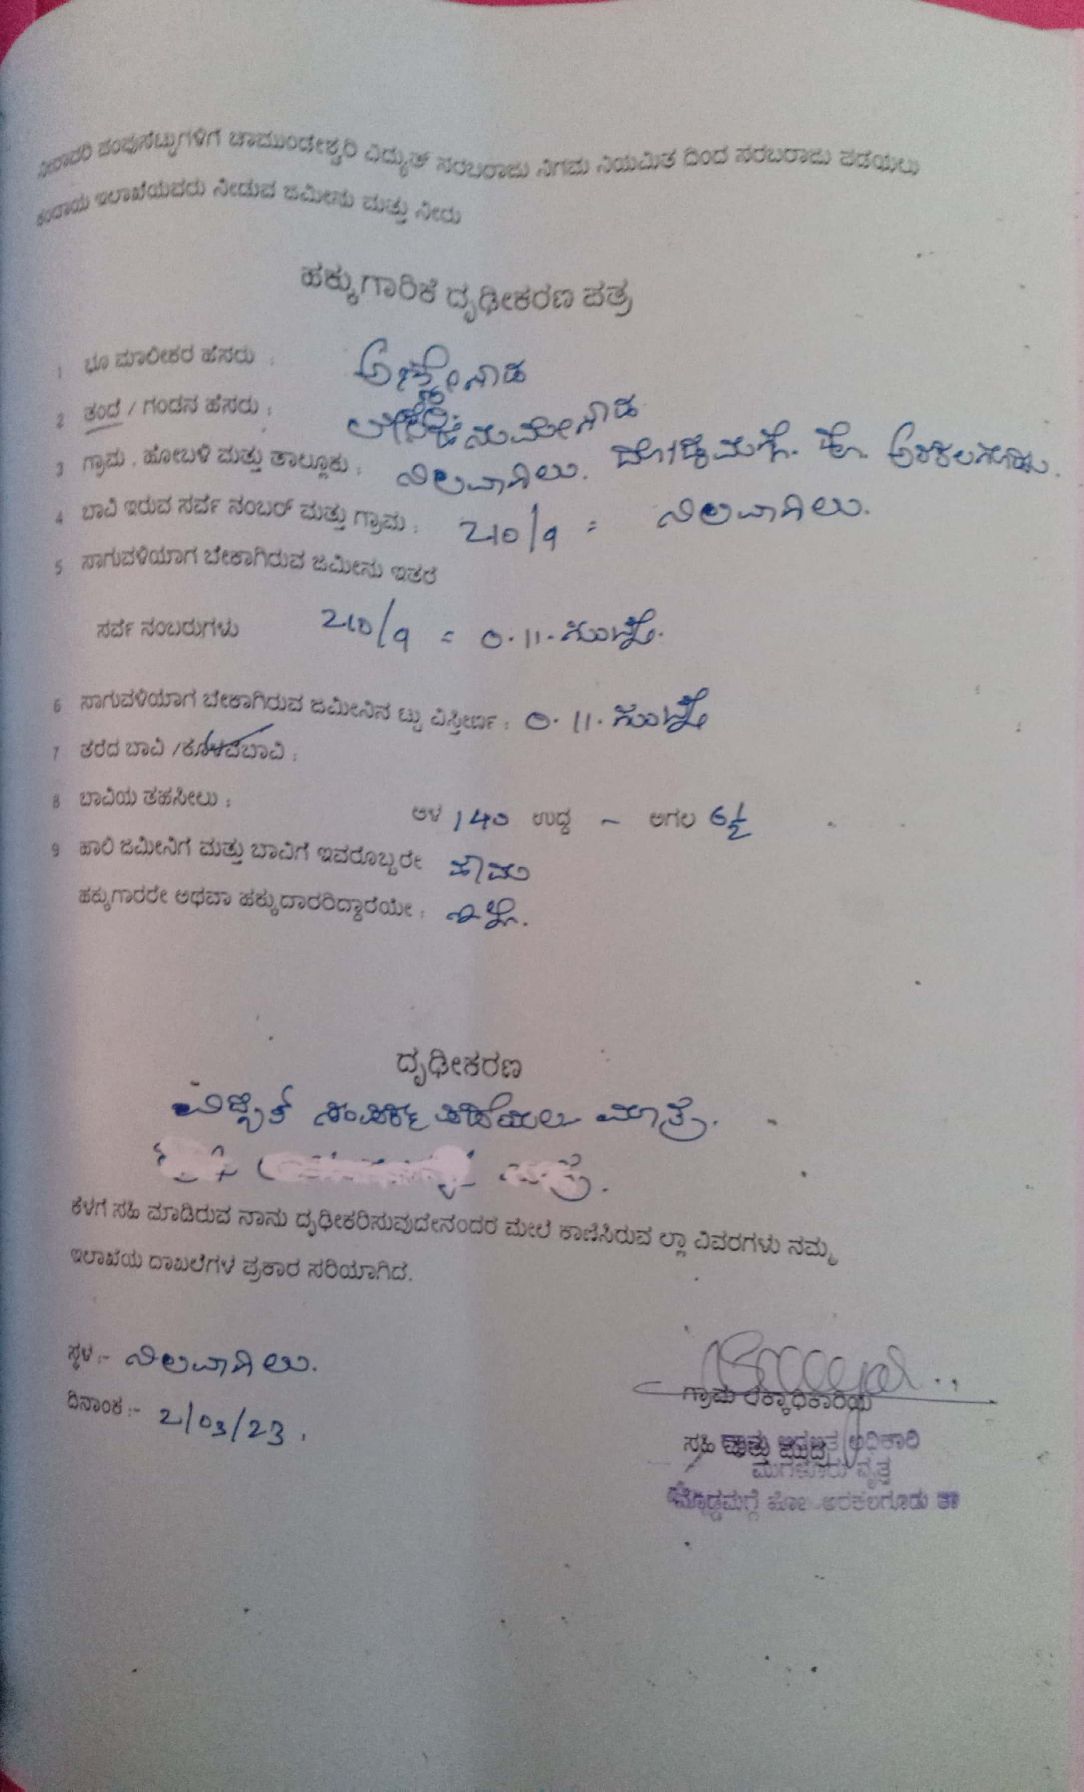 ನೀರಾವರಿ ಪಂಪುಸೆಟ್ಟುಗಳಿಗೆ ಚಾಮುಂಡೇಶ್ವರಿ ವಿದ್ಯುತ್ ಸರಬರಾಜು ನಿಗಮ ನಿಯಮಿತ ದಿಂದ ಸರಬರಾಜು ಪಡೆಯಲು
ಕಂದಾಯ ಇಲಾಖೆಯವರು ನೀಡುವ ಜಮೀನು ಮತ್ತು ನೀರು
ಹಕ್ಕುಗಾರಿಕೆ ದೃಢೀಕರಣ ಪತ್ರ
1 ಭೂ ಮಾಲೀಕರ ಹೆಸರು :
2 ತಂದೆ / ಗಂಡನ ಹೆಸರು :
3 ಗ್ರಾಮ, ಹೋಬಳಿ ಮತ್ತು ತಾಲ್ಲೂಕು : ನಿಲವಾಗಿಲು. ದೊಡ್ಡಮಗ್ಗೆ. ಹೋ. ಅರಕಲಗೂಡು.
4 ಬಾವಿ ಇರುವ ಸರ್ವೆ ನಂಬರ್ ಮತ್ತು ಗ್ರಾಮ : 210/9 = ನಿಲವಾಗಿಲು.
5 ಸಾಗುವಳಿಯಾಗ ಬೇಕಾಗಿರುವ ಜಮೀನು ಇತರ
ಸರ್ವೆ ನಂಬರುಗಳು 210/9 = 0.11.ಗುಂಟೆ.
6 ಸಾಗುವಳಿಯಾಗ ಬೇಕಾಗಿರುವ ಜಮೀನಿನ ಟ್ಟು ವಿಸ್ತೀರ್ಣ : 0.11.ಗುಂಟೆ
7 ತೆರೆದ ಬಾವಿ /ಕೊಳವೆಬಾವಿ :
8 ಬಾವಿಯ ತಹಸೀಲು : ಆಳ 140 ಉದ್ದ ~ ಅಗಲ 6½
9 ಹಾಲಿ ಜಮೀನಿಗೆ ಮತ್ತು ಬಾವಿಗೆ ಇವರೊಬ್ಬರೇ ಹೌದು
ಹಕ್ಕುಗಾರರೇ ಅಥವಾ ಹಕ್ಕುದಾರರಿದ್ದಾರೆಯೇ : ಇಲ್ಲ.
ದೃಢೀಕರಣ
ವಿದ್ಯುತ್ ಸಂಪರ್ಕ ಪಡೆಯಲು ಮಾತ್ರ.
ಕೆಳಗೆ ಸಹಿ ಮಾಡಿರುವ ನಾನು ದೃಢೀಕರಿಸುವುದೇನೆಂದರೆ ಮೇಲೆ ಕಾಣಿಸಿರುವ ಲ್ಲಾ ವಿವರಗಳು ನಮ್ಮ
ಇಲಾಖೆಯ ದಾಖಲೆಗಳ ಪ್ರಕಾರ ಸರಿಯಾಗಿದೆ.
ಸ್ಥಳ :- ನಿಲವಾಗಿಲು.
ದಿನಾಂಕ :- 2/03/23.
ಗ್ರಾಮ ಲೆಕ್ಕಾಧಿಕಾರಿಯ
ಸಹಿ ಮತ್ತು ಮುದ್ರೆ
ಅಧಿಕಾರಿ
ವೃತ್ತ
ದೊಡ್ಡಮಗ್ಗೆ ಹೋ ಅರಕಲಗೂಡು ತಾ